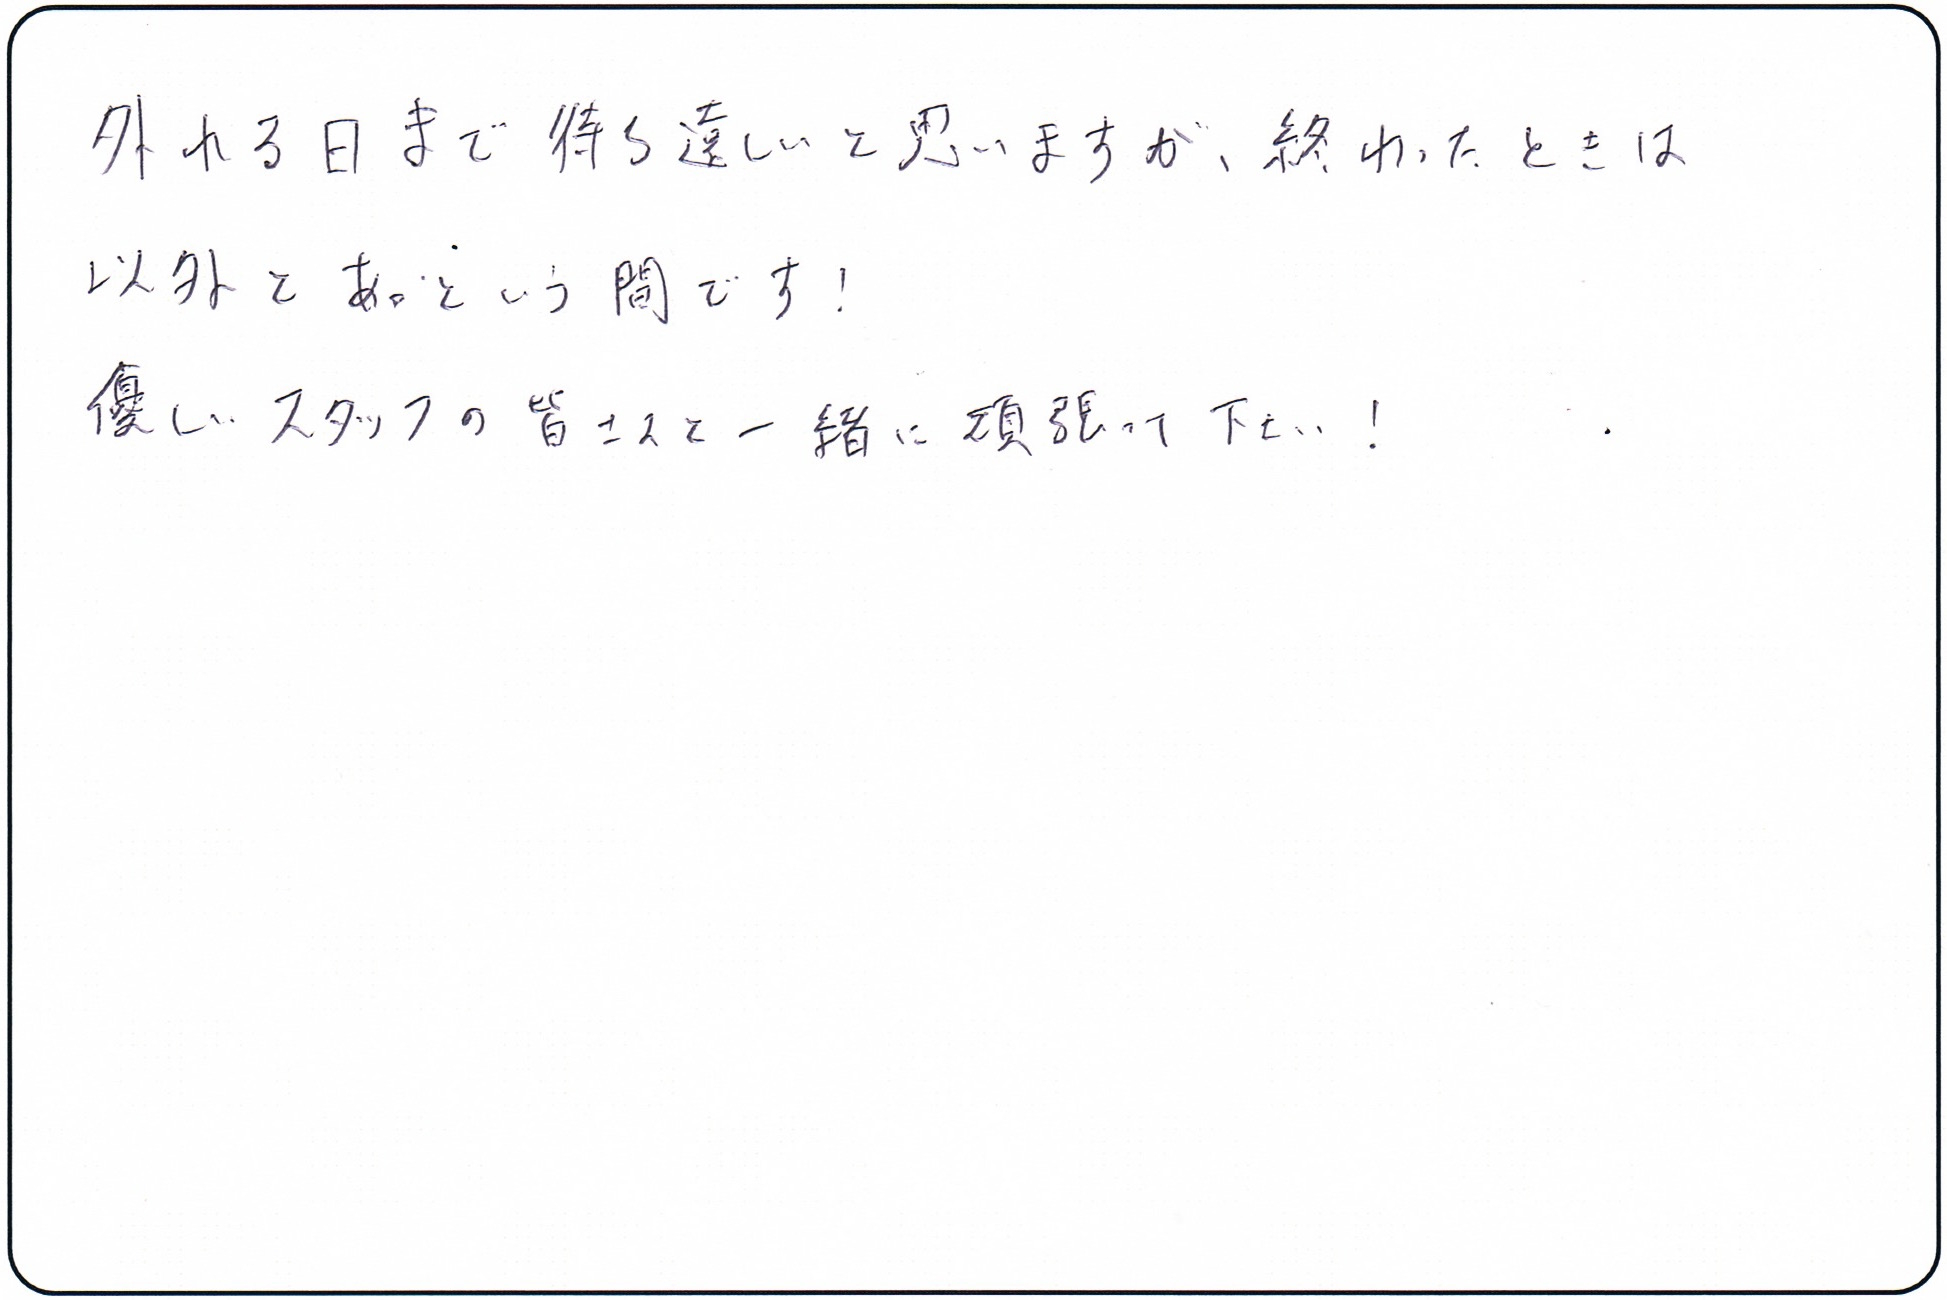 外れる日まで待ち遠しいと思いますが、終わったときは
以外とあっという間です!
優しいスタッフの皆さんと一緒に頑張って下さい!